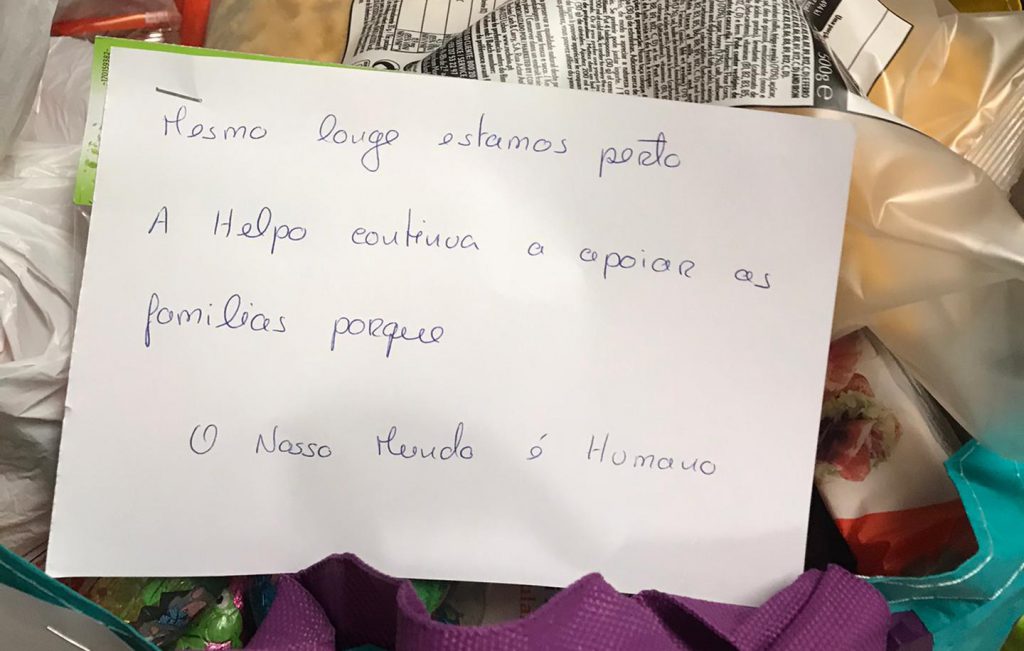 300g e
Mesmo longe estamos perto
A Helpo continua a apoiar as
familias porque
O Nosso Mundo é Humano